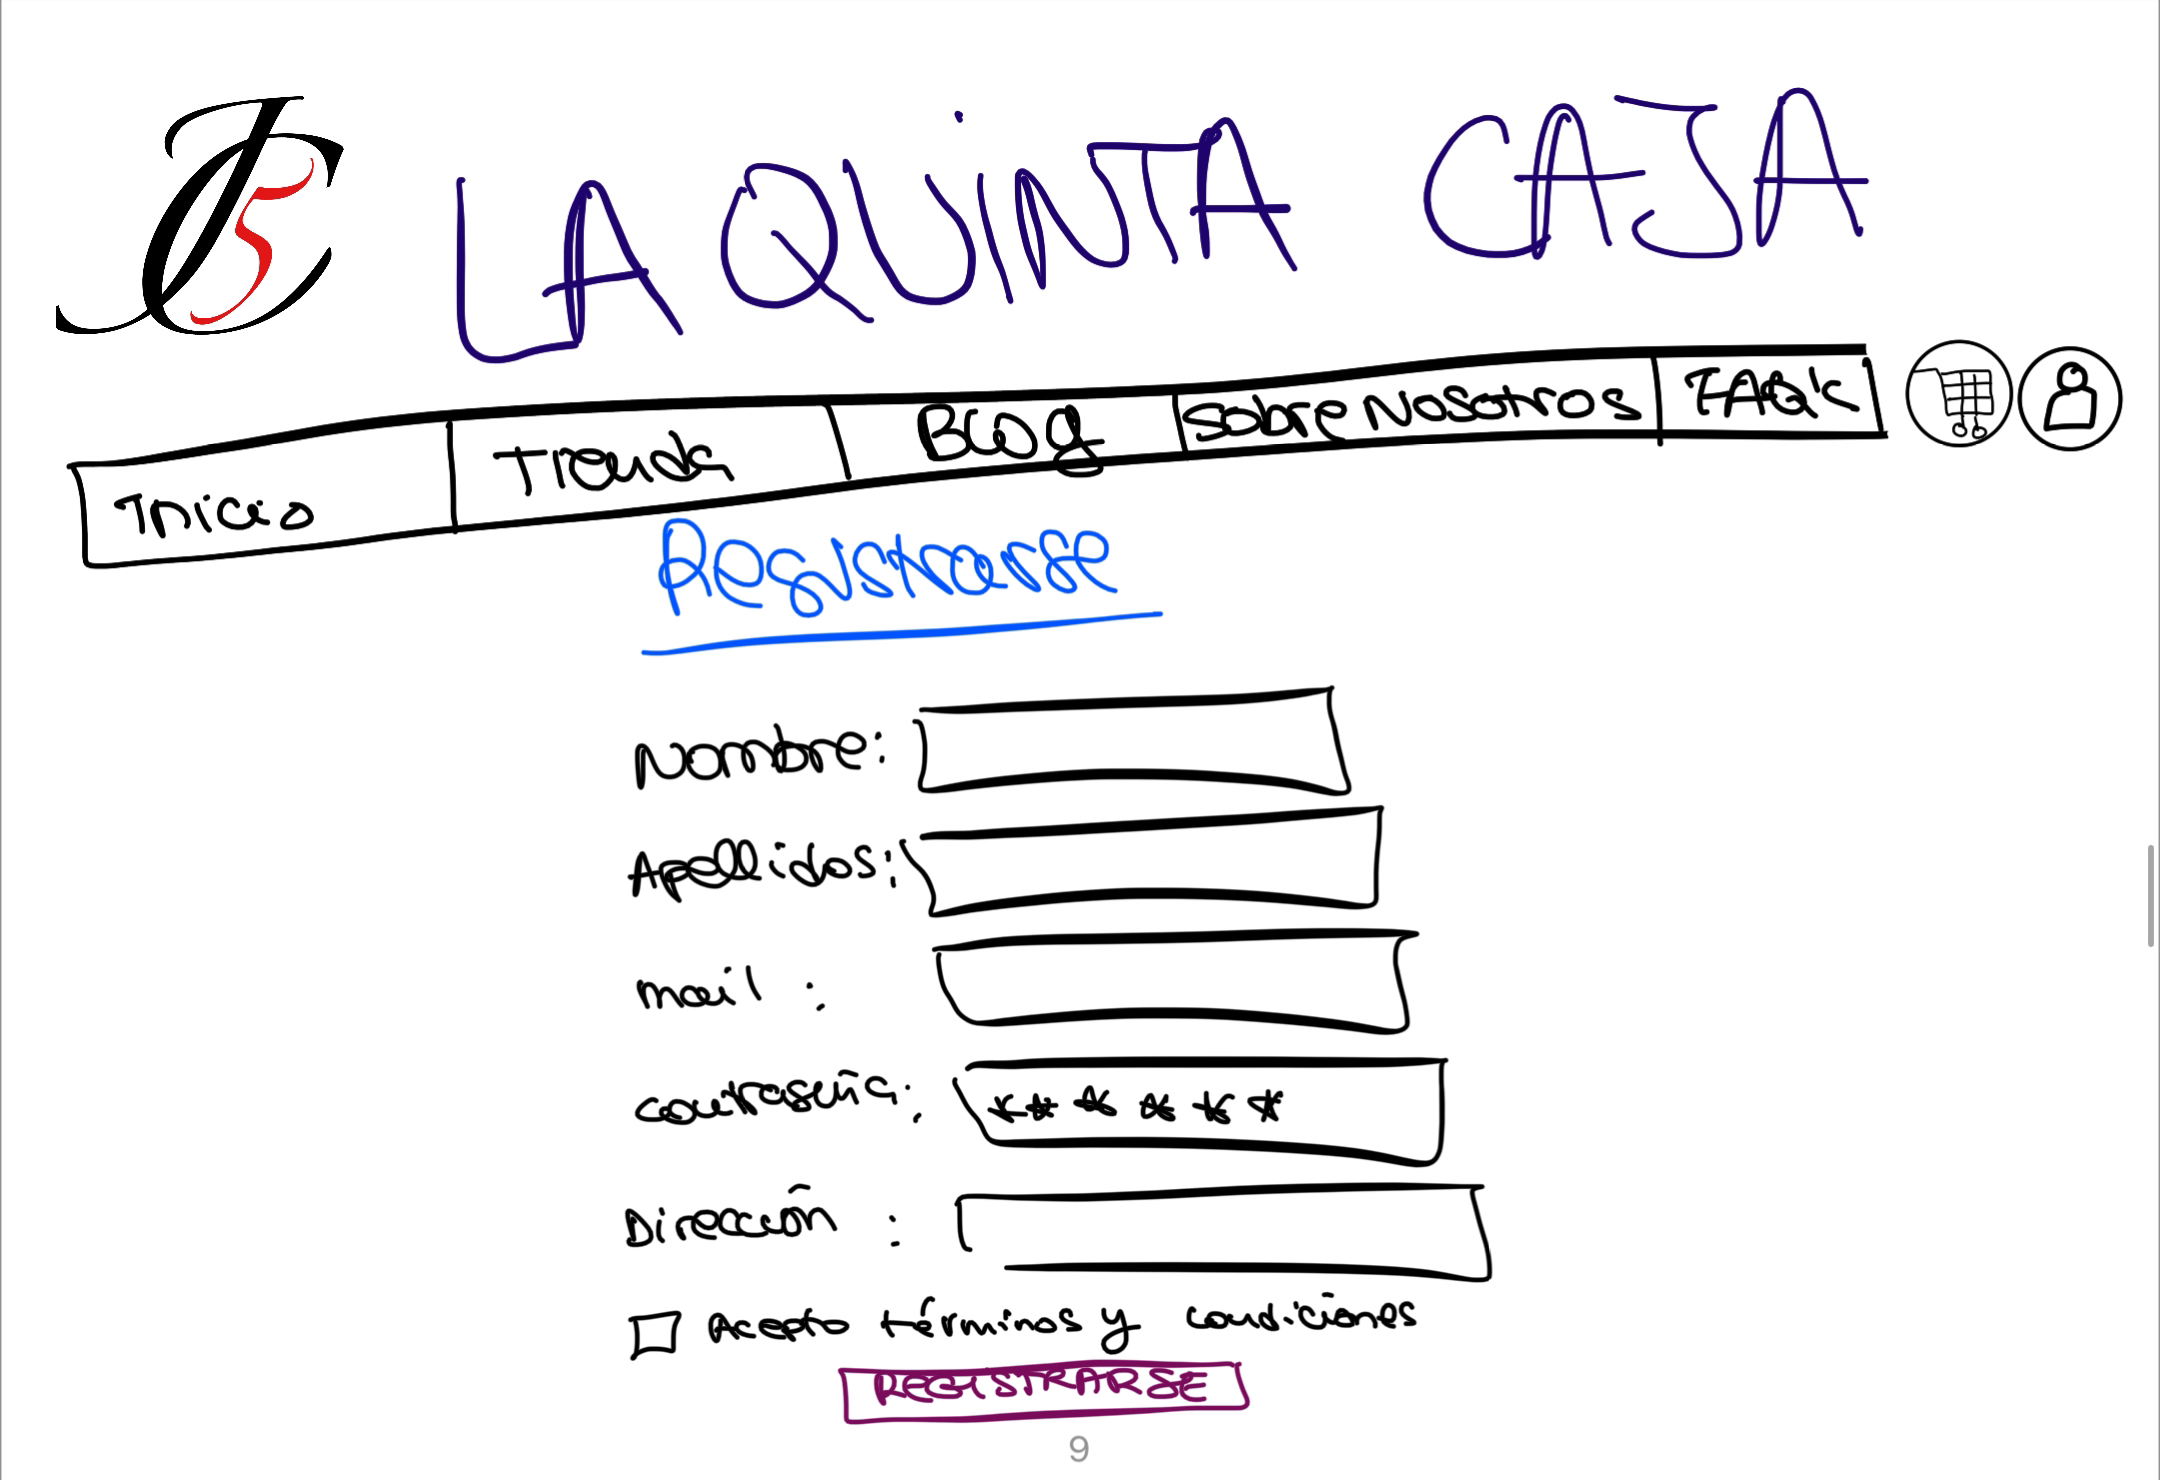 LA QUINTA CAJA
Inicio Tienda Blog Sobre Nosotros FAQ's
Registrarse
Nombre:
Apellidos:
mail :
contraseña:
******
Dirección :
Acepto términos y condiciones
REGISTRARSE
9